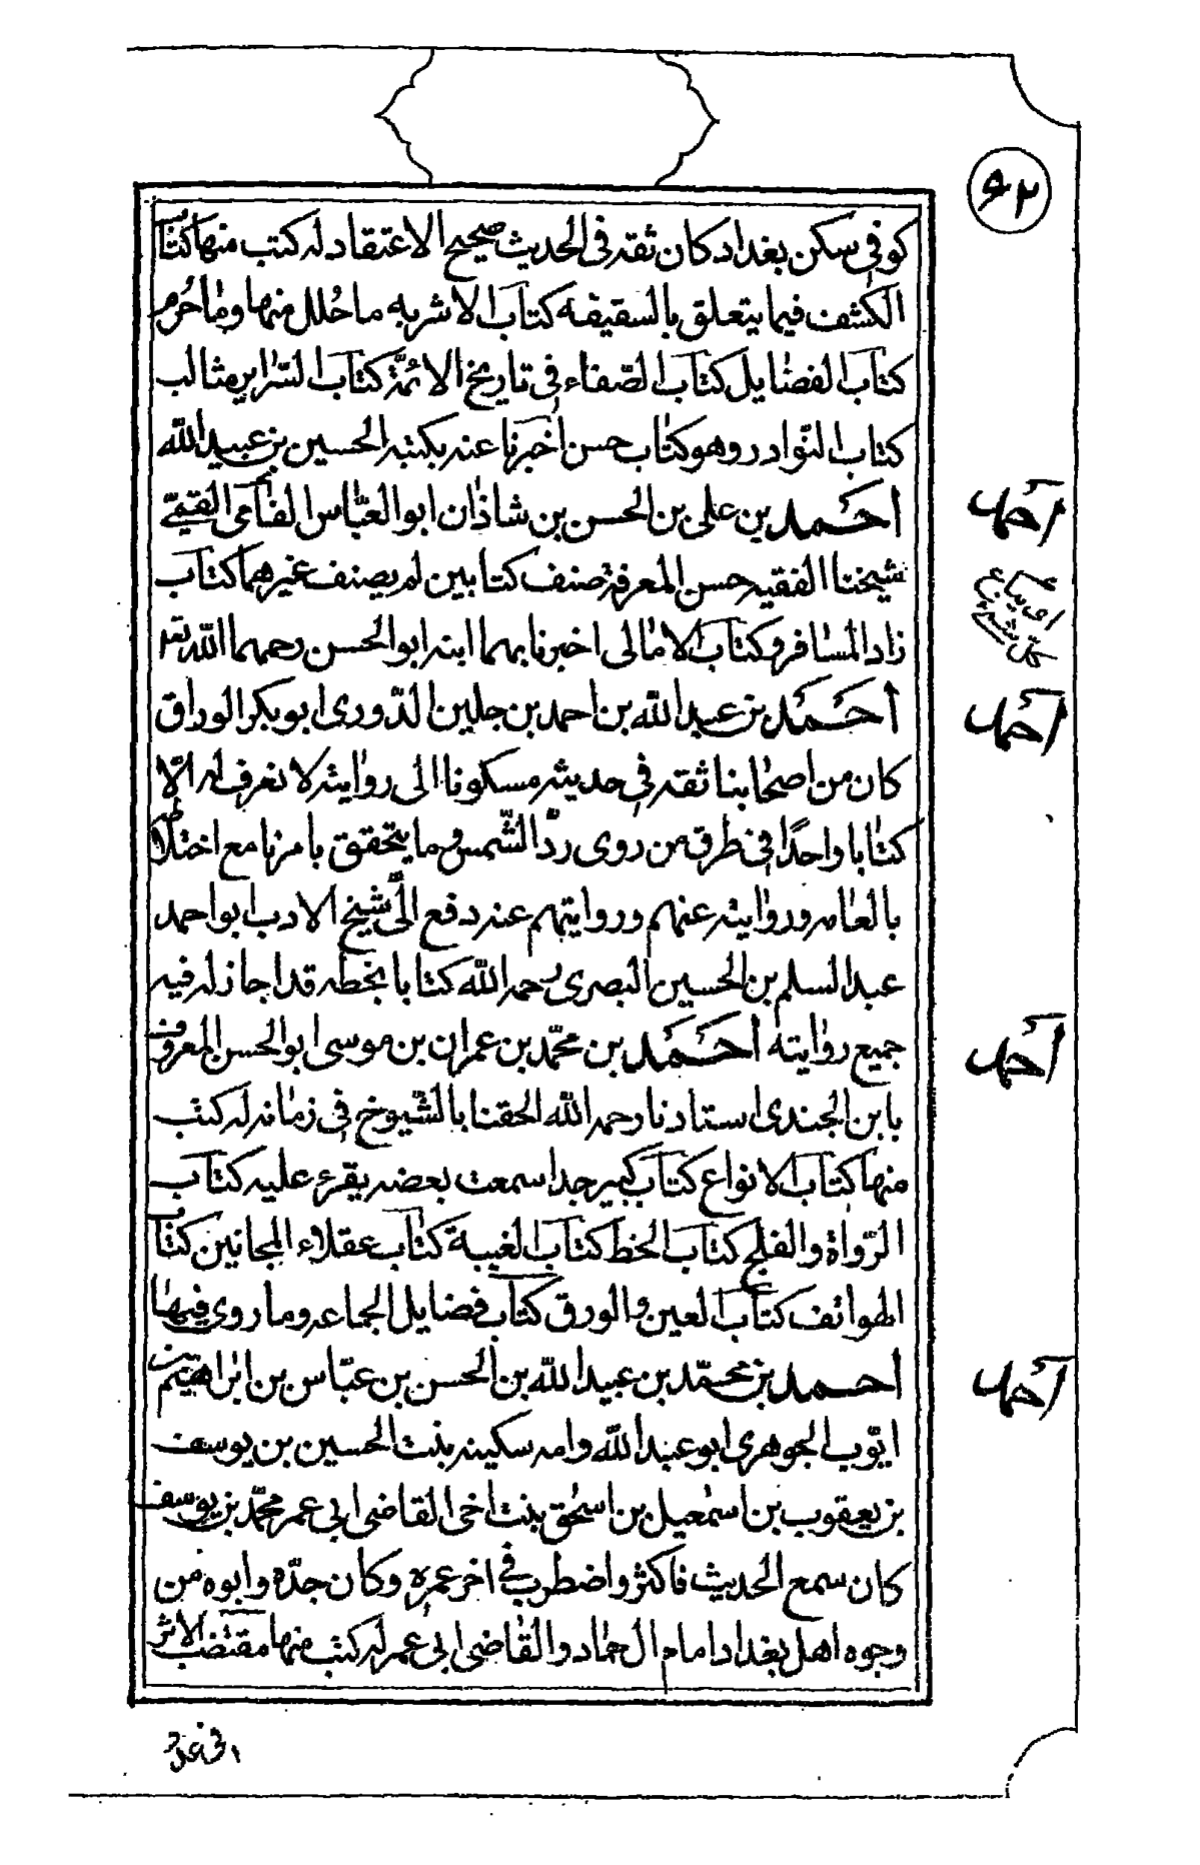 ٦٢
كوفى سكن بغداد كان ثقه فى الحديث صحيح الاعتقاد له كتب منها كتاب
الكشف فيما يتعلق بالسقيفه كتاب الاشربه ما حُلل منها وما حُرم
كتاب الفضايل كتاب الصفاء فى تاريخ الائمّة كتاب السّراير مثالب
كتاب النّوادر وهو كتاب حسن اخبرنا عنه بكتبه الحسين بن عبيد الله
احمد بن على بن الحسن بن شاذان ابو العبّاس الفامى القمّى
شيخنا الفقيه حسن المعرفة صنف كتابين لم يصنف غيرهما كتاب
زاد المسافر وكتاب الامالى اخبرنا بهما ابنه ابو الحسن رحمهما الله تعه
احمد بن عبد الله بن احمد بن جلين الدّورى ابو بكر الوراق
كان من اصحابنا ثقه فى حديثه مسكونا الى روايته لا نعرف له الّا
كتابا واحدًا فى طرق من روى ردّ الشّمس وما يتحقق بامرنا مع اختلاطه
بالعامه وروايته عنهم وروايتهم عنه دفع الىّ شيخ الادب ابو احمد
عبد السلم بن الحسين البصرى رحمه الله كتابا بخطه قد اجاز له فيه
جميع روايته احمد بن محمّد بن عمران بن موسى ابو الحسن المعروف
بابن الجندى استادنا رحمه الله الحقنا بالشّيوخ فى زمانه له كتب
منها كتاب الانواع كتاب كبير جدا سمعت بعضه يقرء عليه كتاب
الرّواة والفلج كتاب الخط كتاب الغيبة كتاب عقلاء المجانين كتاب
الهواتف كتاب العين والورق كتاب فضايل الجماعه وما روى فيها
احمد بن محمّد بن عبيد الله بن الحسن بن عبّاس بن ابراهيم بن
ايّوب الجوهرى ابو عبد الله وامه سكينه بنت الحسين بن يوسف
بن يعقوب بن اسمعيل بن اسحق بنت اخى القاضى ابى عمر محمّد بن يوسف
كان سمع الحديث فاكثر واضطرب فى اخر عمره وكان جدّه وابوه من
وجوه اهل بغداد امام ال حماد والقاضى ابى عمر له كتب منها مقتضب الاثر
احمد
احمد
احمد
احمد